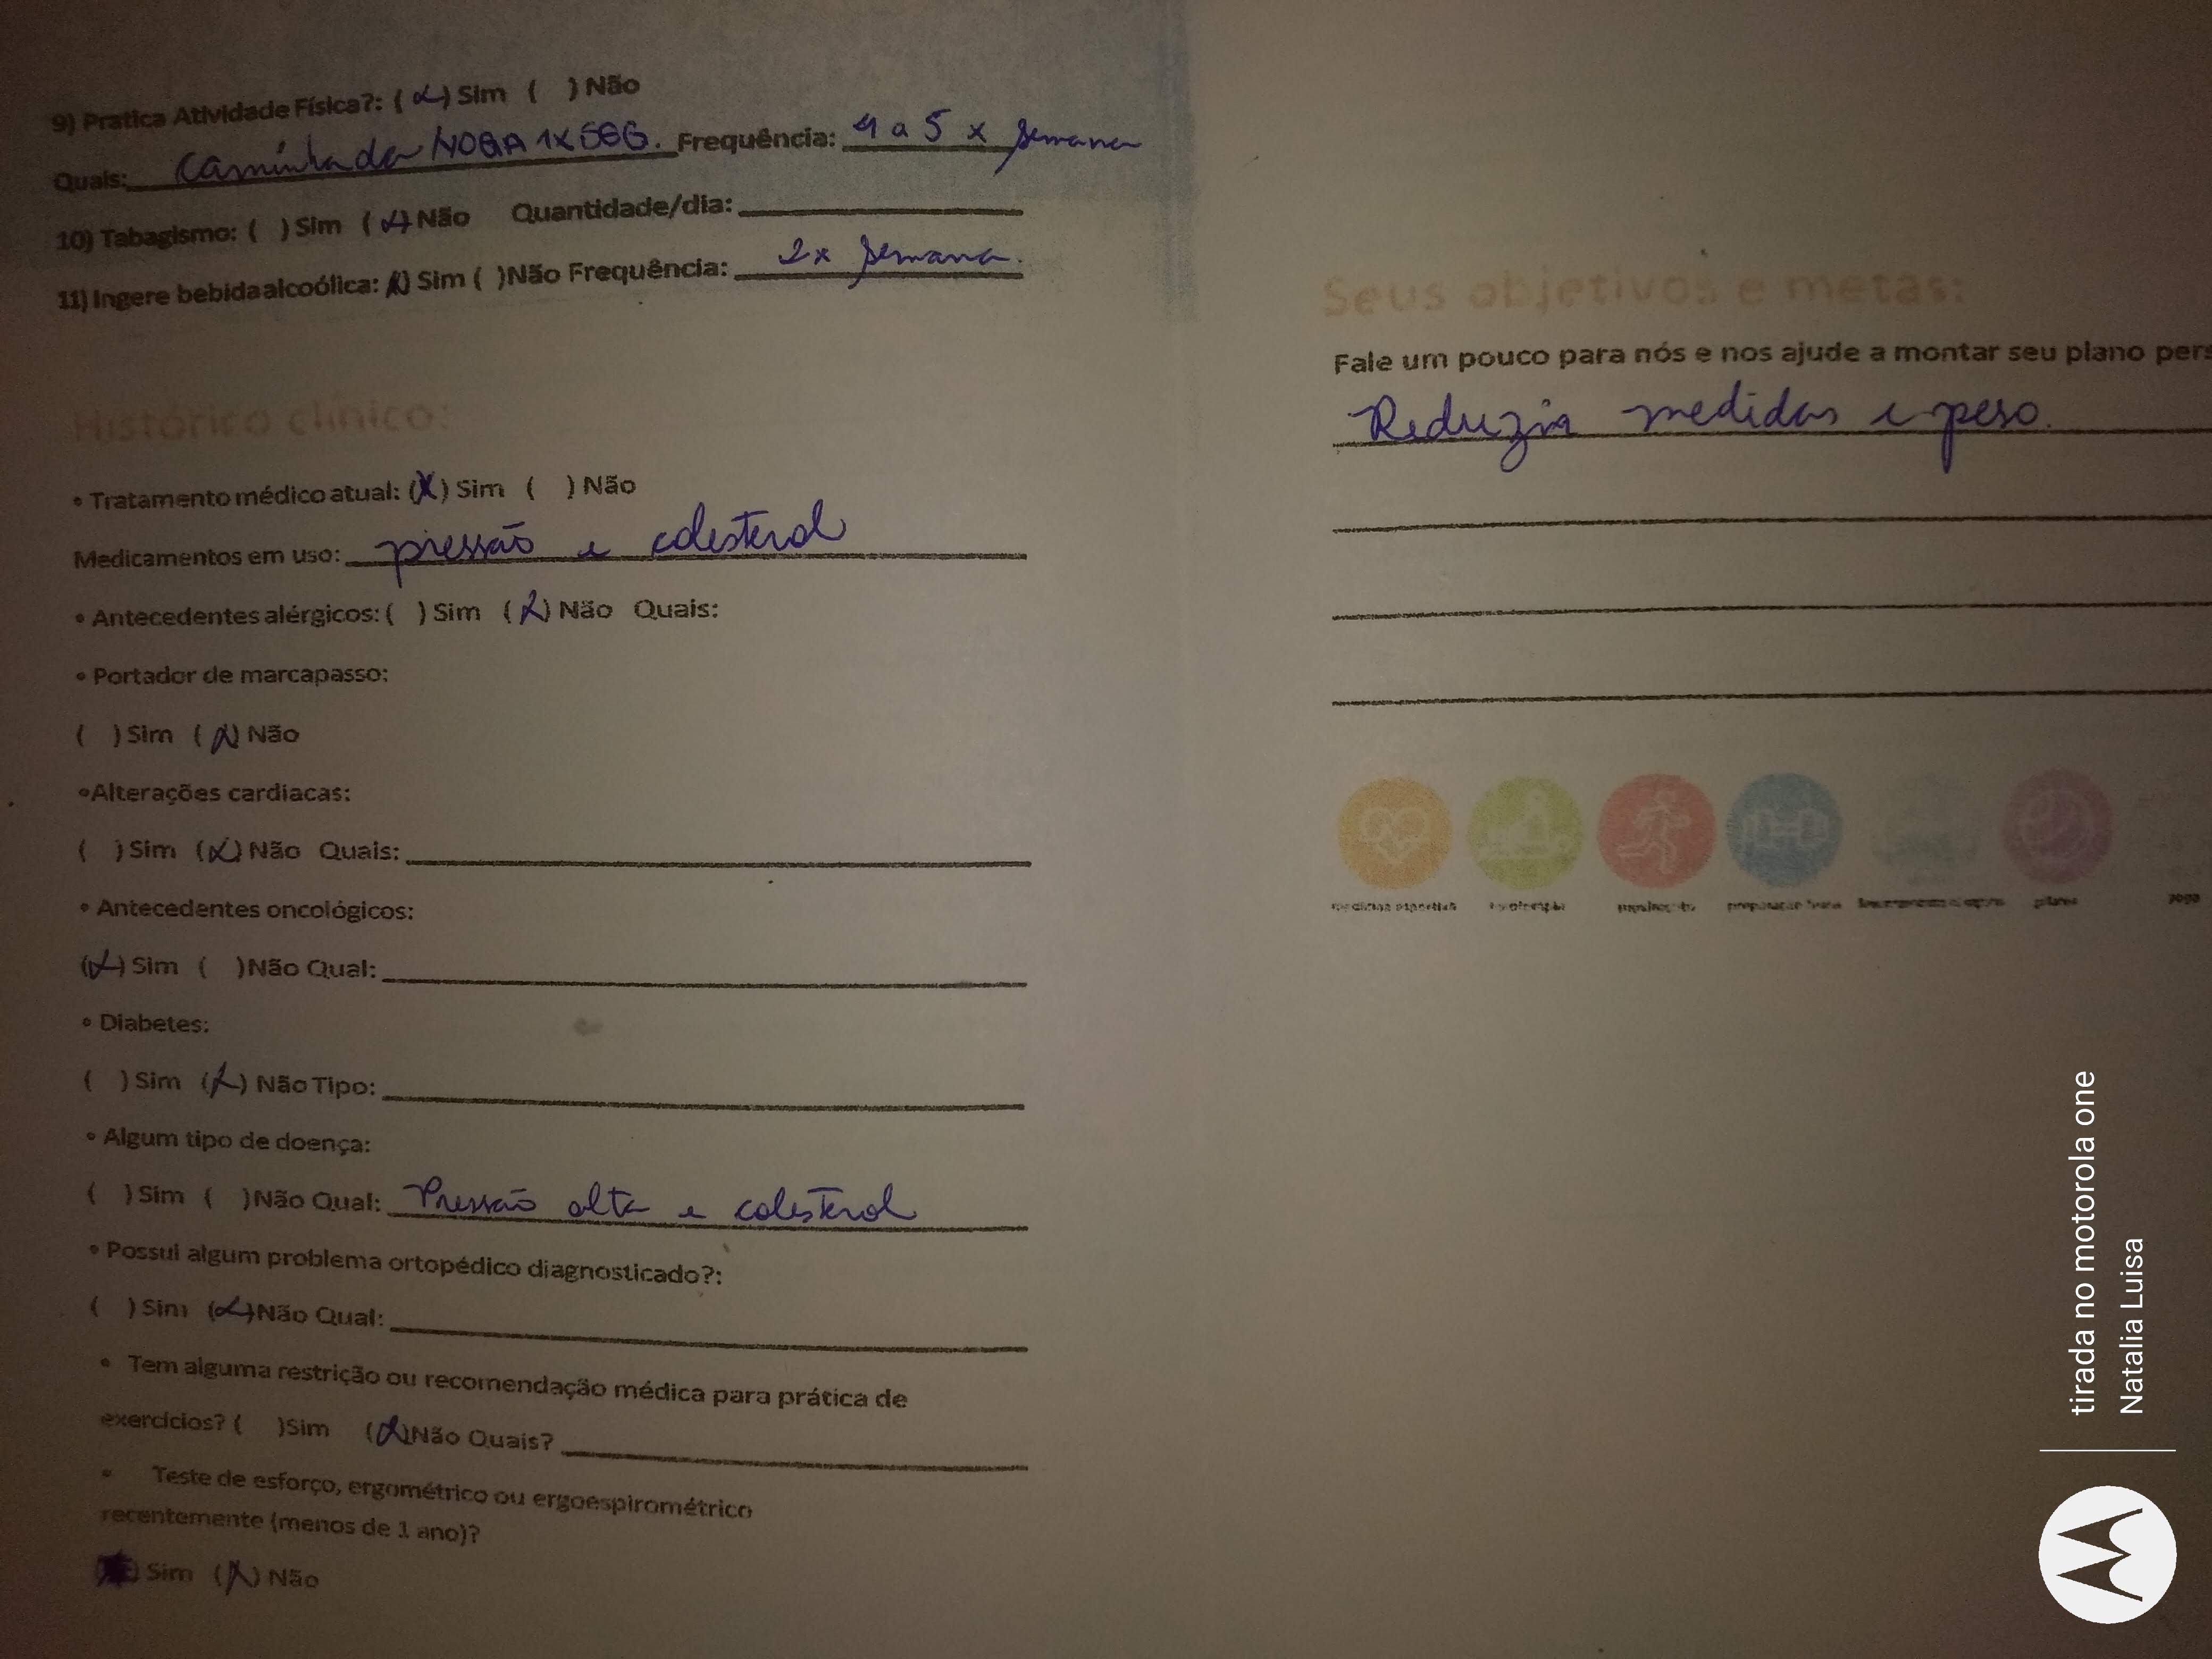 9) Pratica Atividade Física?: (X) Sim ( ) Não
Quais: Caminhada YOGA 1X SEG. Frequência: 4 a 5 x semana
10) Tabagismo: ( ) Sim (X) Não Quantidade/dia:
11) Ingere bebida alcoólica: (X) Sim ( )Não Frequência: 2x semana.
Histórico clínico:
• Tratamento médico atual: (X) Sim ( ) Não
Medicamentos em uso: pressão e colesterol
• Antecedentes alérgicos: ( ) Sim (X) Não Quais:
• Portador de marcapasso:
( ) Sim (X) Não
•Alterações cardiacas:
( ) Sim (X) Não Quais:
• Antecedentes oncológicos:
(X) Sim ( )Não Qual:
• Diabetes:
( ) Sim (X) Não Tipo:
• Algum tipo de doença:
( )Sim ( )Não Qual: Pressão alta e colesterol
• Possui algum problema ortopédico diagnosticado?:
( ) Sim (X) Não Qual:
• Tem alguma restrição ou recomendação médica para prática de
exercícios? ( )Sim (X)Não Quais?
• Teste de esforço, ergométrico ou ergoespirométrico
recentemente (menos de 1 ano)?
Sim (X) Não
Seus objetivos e metas:
Fale um pouco para nós e nos ajude a montar seu plano pers
Reduzir medidas e peso.
pilates
yoga
tirada no motorola one
Natalia Luisa